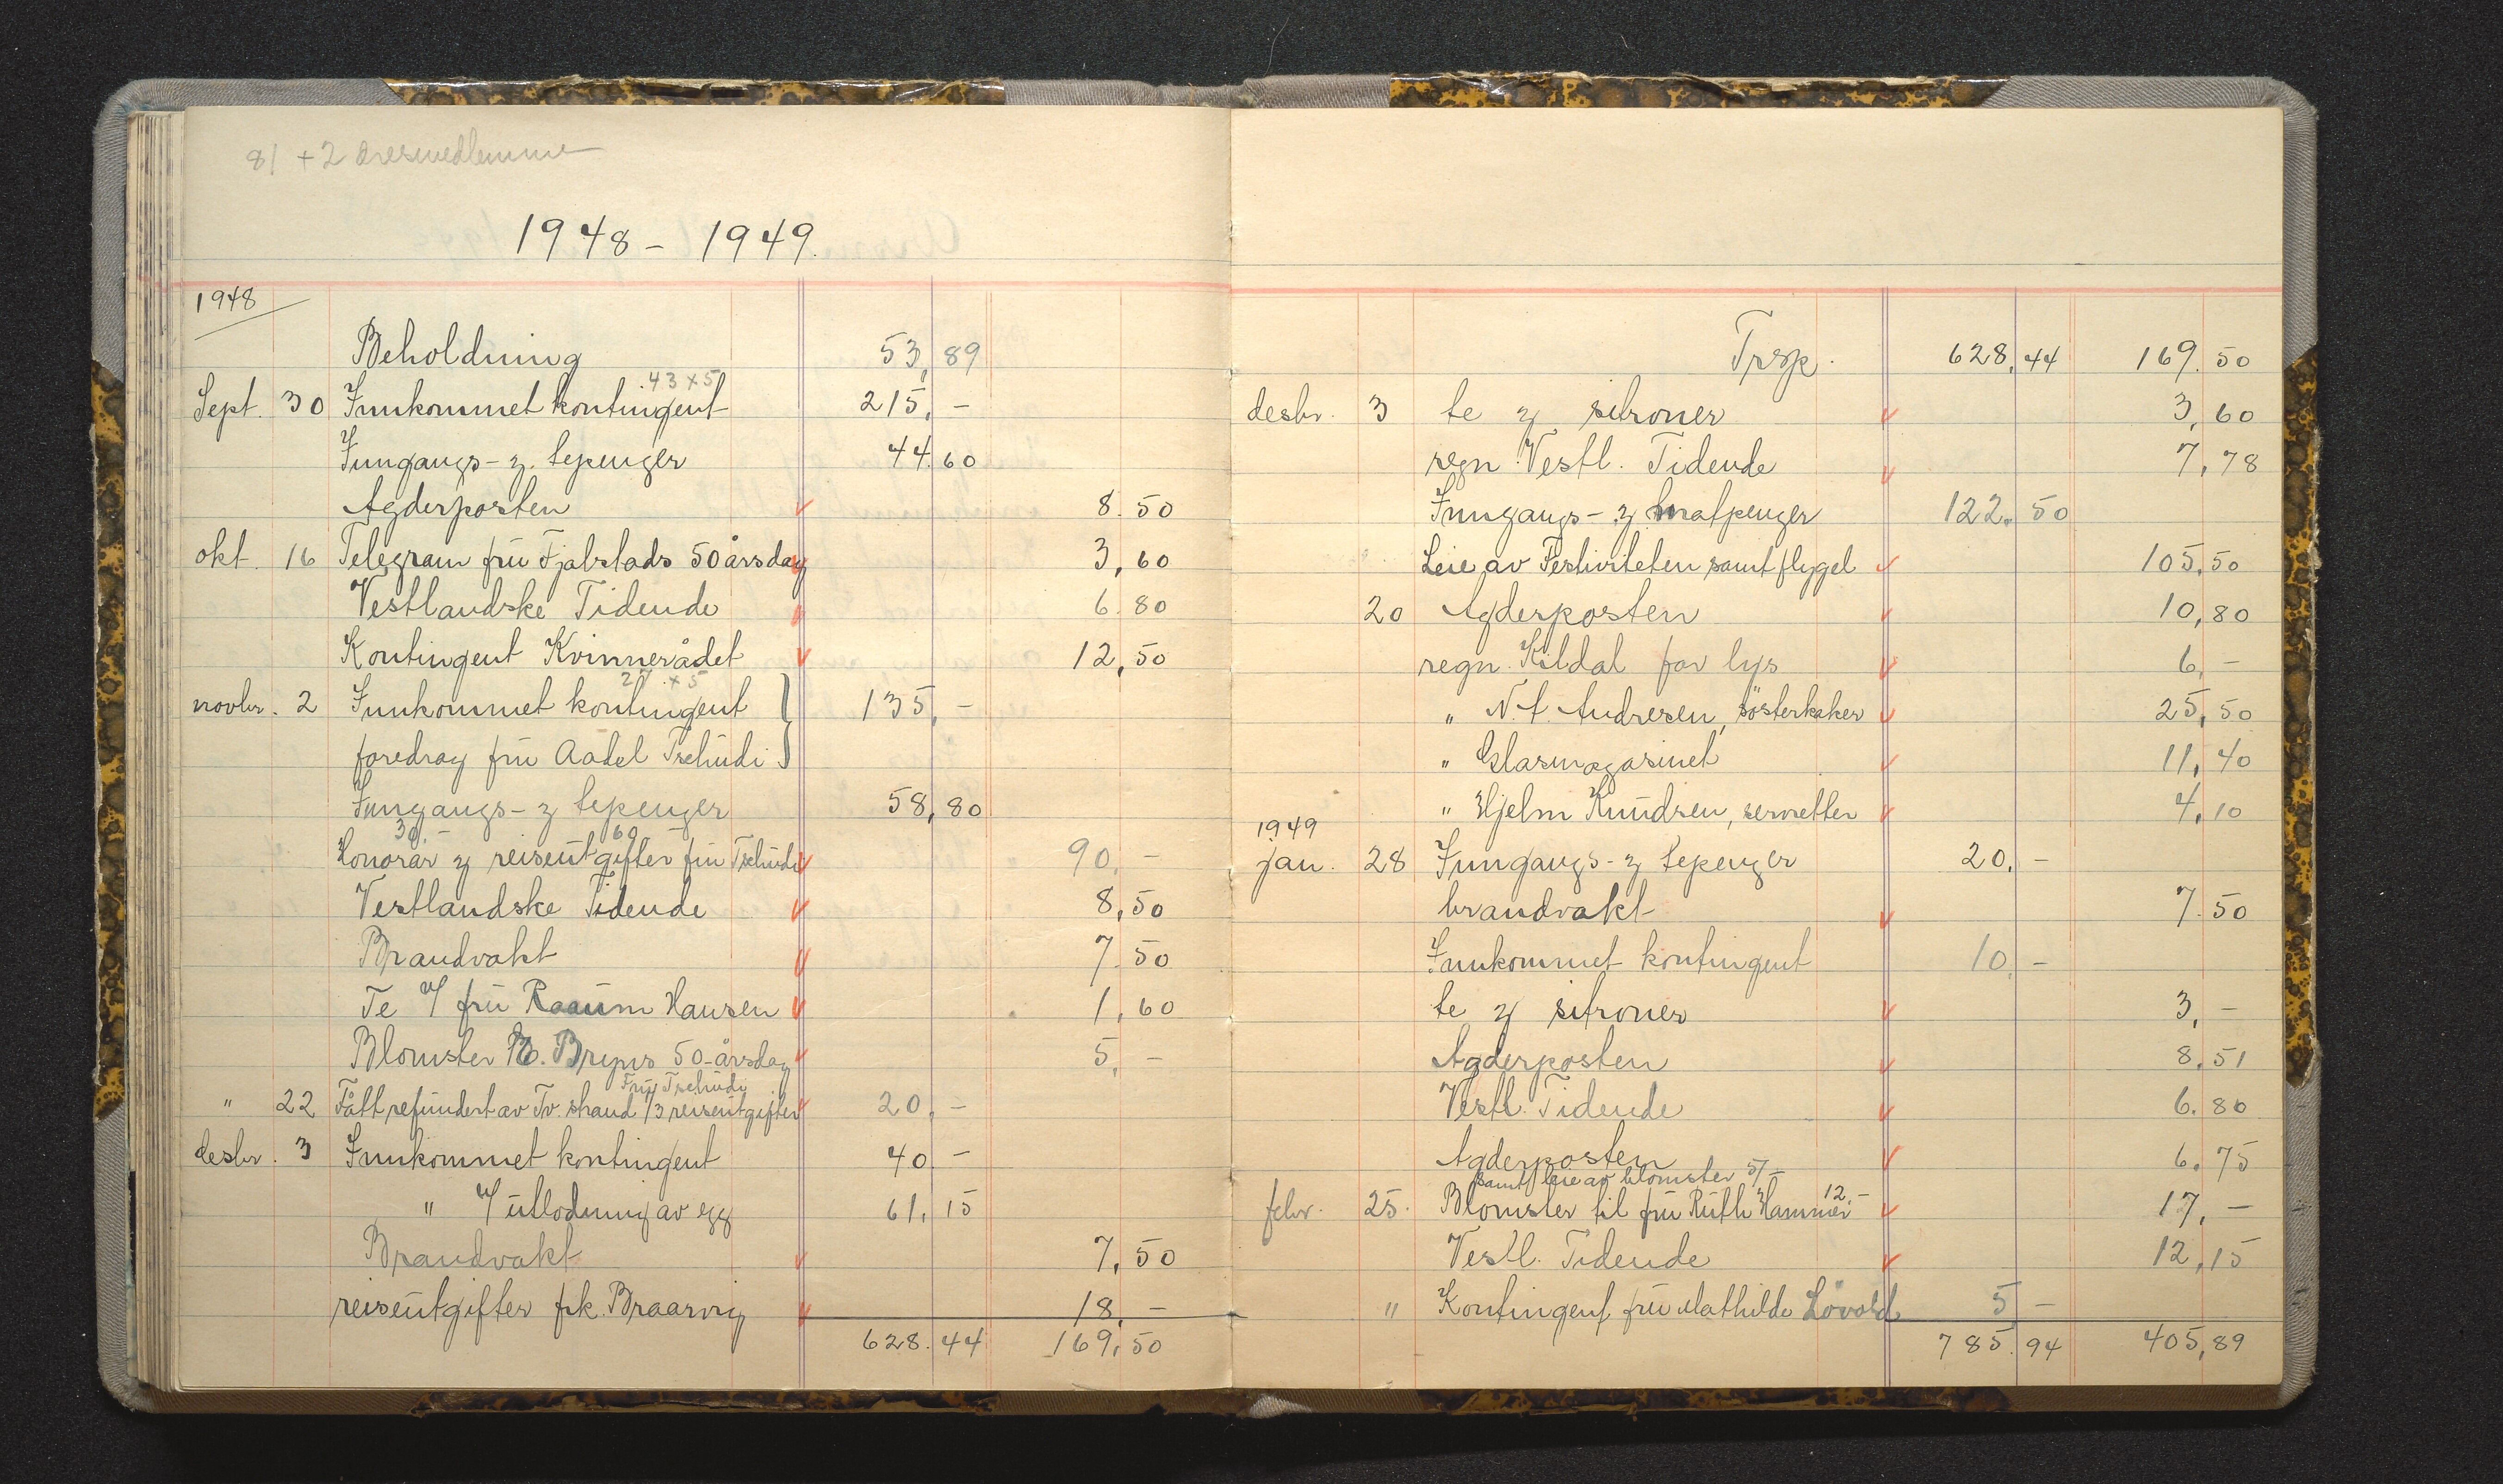 81 + 2 æresmedlemmer
1948 - 1949.
1948
Beholdning 53,89
43 x 5
Sept. 30 Innkommet kontingent 215,-
Inngangs- & tepenger 44.60
Agderposten 8.50
okt. 16 Telegram fru Fjalstads 50årsdag 3,60
Vestlandske Tidende 6.80
Kontingent Kvinnerådet 12,50
27 x 5
novbr. 2 Innkommet kontingent 135,-
foredrag fru Aadel Tschudi
Inngangs- & tepenger 58,80
30.- 60
Honorar & reiseutgifter fru Tschudi 90.-
Vestlandske Tidende 8,50
Brandvakt 7.50
Te v/ fru Raaum Hansen 1,60
Blomster B. Bryns 50-årsdag 5,-
Fru Tschudi
" 22 Fått refundert av Tv.strand 1/3 reiseutgifter 20,-
desbr. 3 Innkommet kontingent 40.-
" v/ utlodning av egg 61,15
Brandvakt 7,50
reiseutgifter frk. Braarvig 18,-
628.44 169,50
Trsp. 628,44 169.50
desbr. 3 te & sitroner 3,60
regn. Vestl. Tidende 7,78
Inngangs- & matpenger 122.50
Leie av Festiviteten samt flygel 105,50
20 Agderposten 10,80
regn. Kildal for lys 6,-
" N. A. Andresen, søsterkaker 25,50
" Glasmagasinet 11,40
" Hjelm Knudsen, servietter 4,10
1949
jan. 28 Inngangs- & tepenger 20.-
brandvakt 7.50
Innkommet kontingent 10.-
te & sitroner 3,-
Agderposten 8.51
Vestl. Tidende 6.80
Agderposten 6.75
samt leie av blomster 5/-
12.-
febr. 25. Blomster til fru Ruth Hammer 17,-
Vestl. Tidende 12,15
" Kontingent fru Mathilde Løvold 5-
785.94 405,89